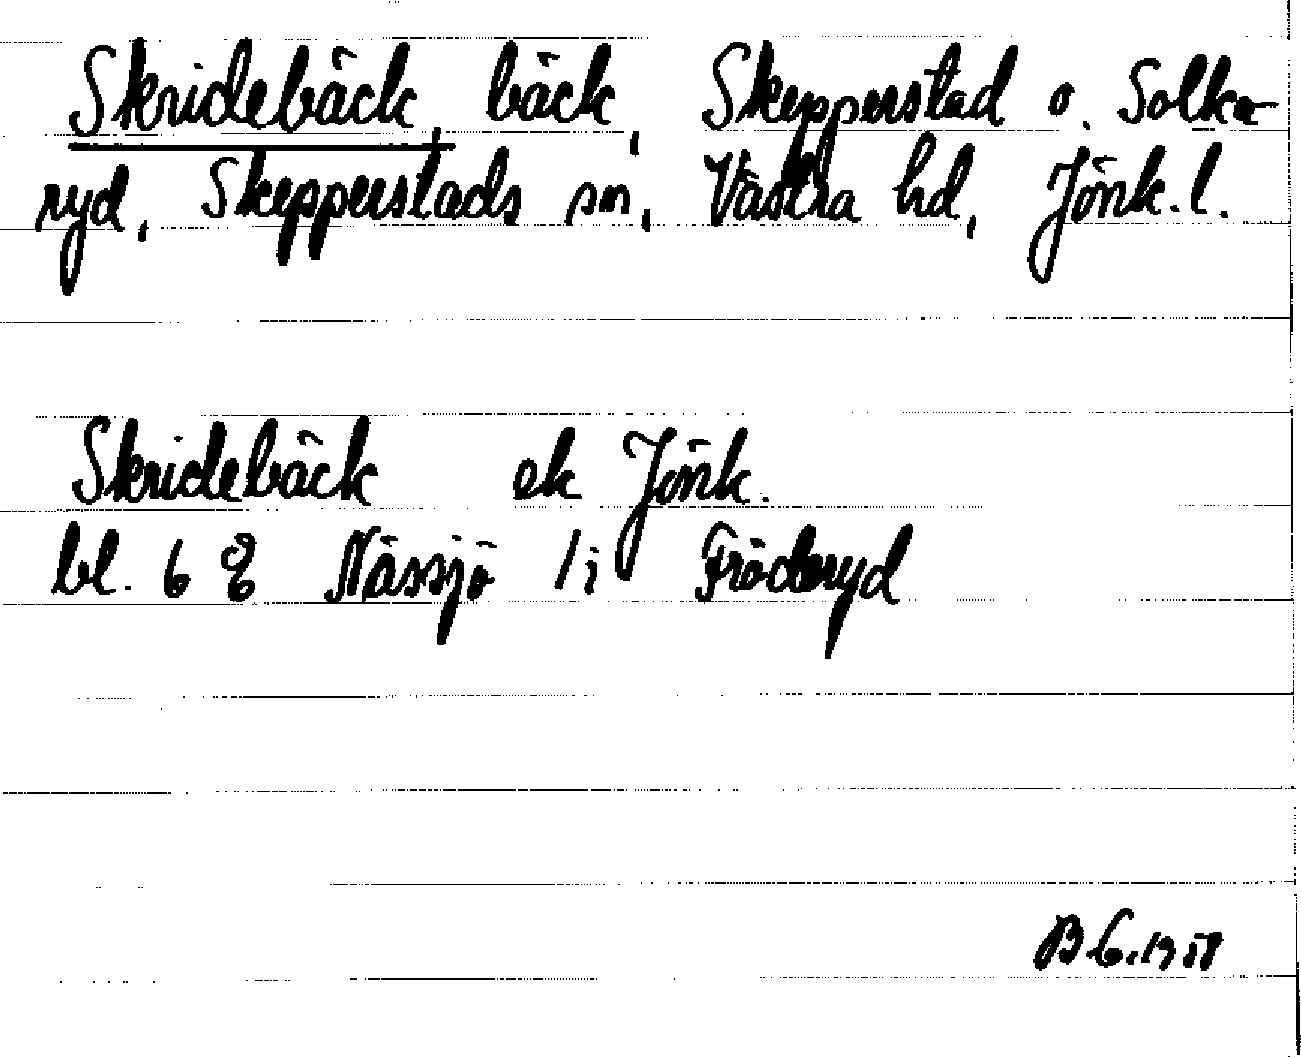 Skridebäck, bäck, Skepperstad o. Solka-
ryd, Skepperstads sn, Västra hd, Jönk. l.
Skridebäck ek Jönk.
bl. 6 8 Nässjö / i Fröderyd